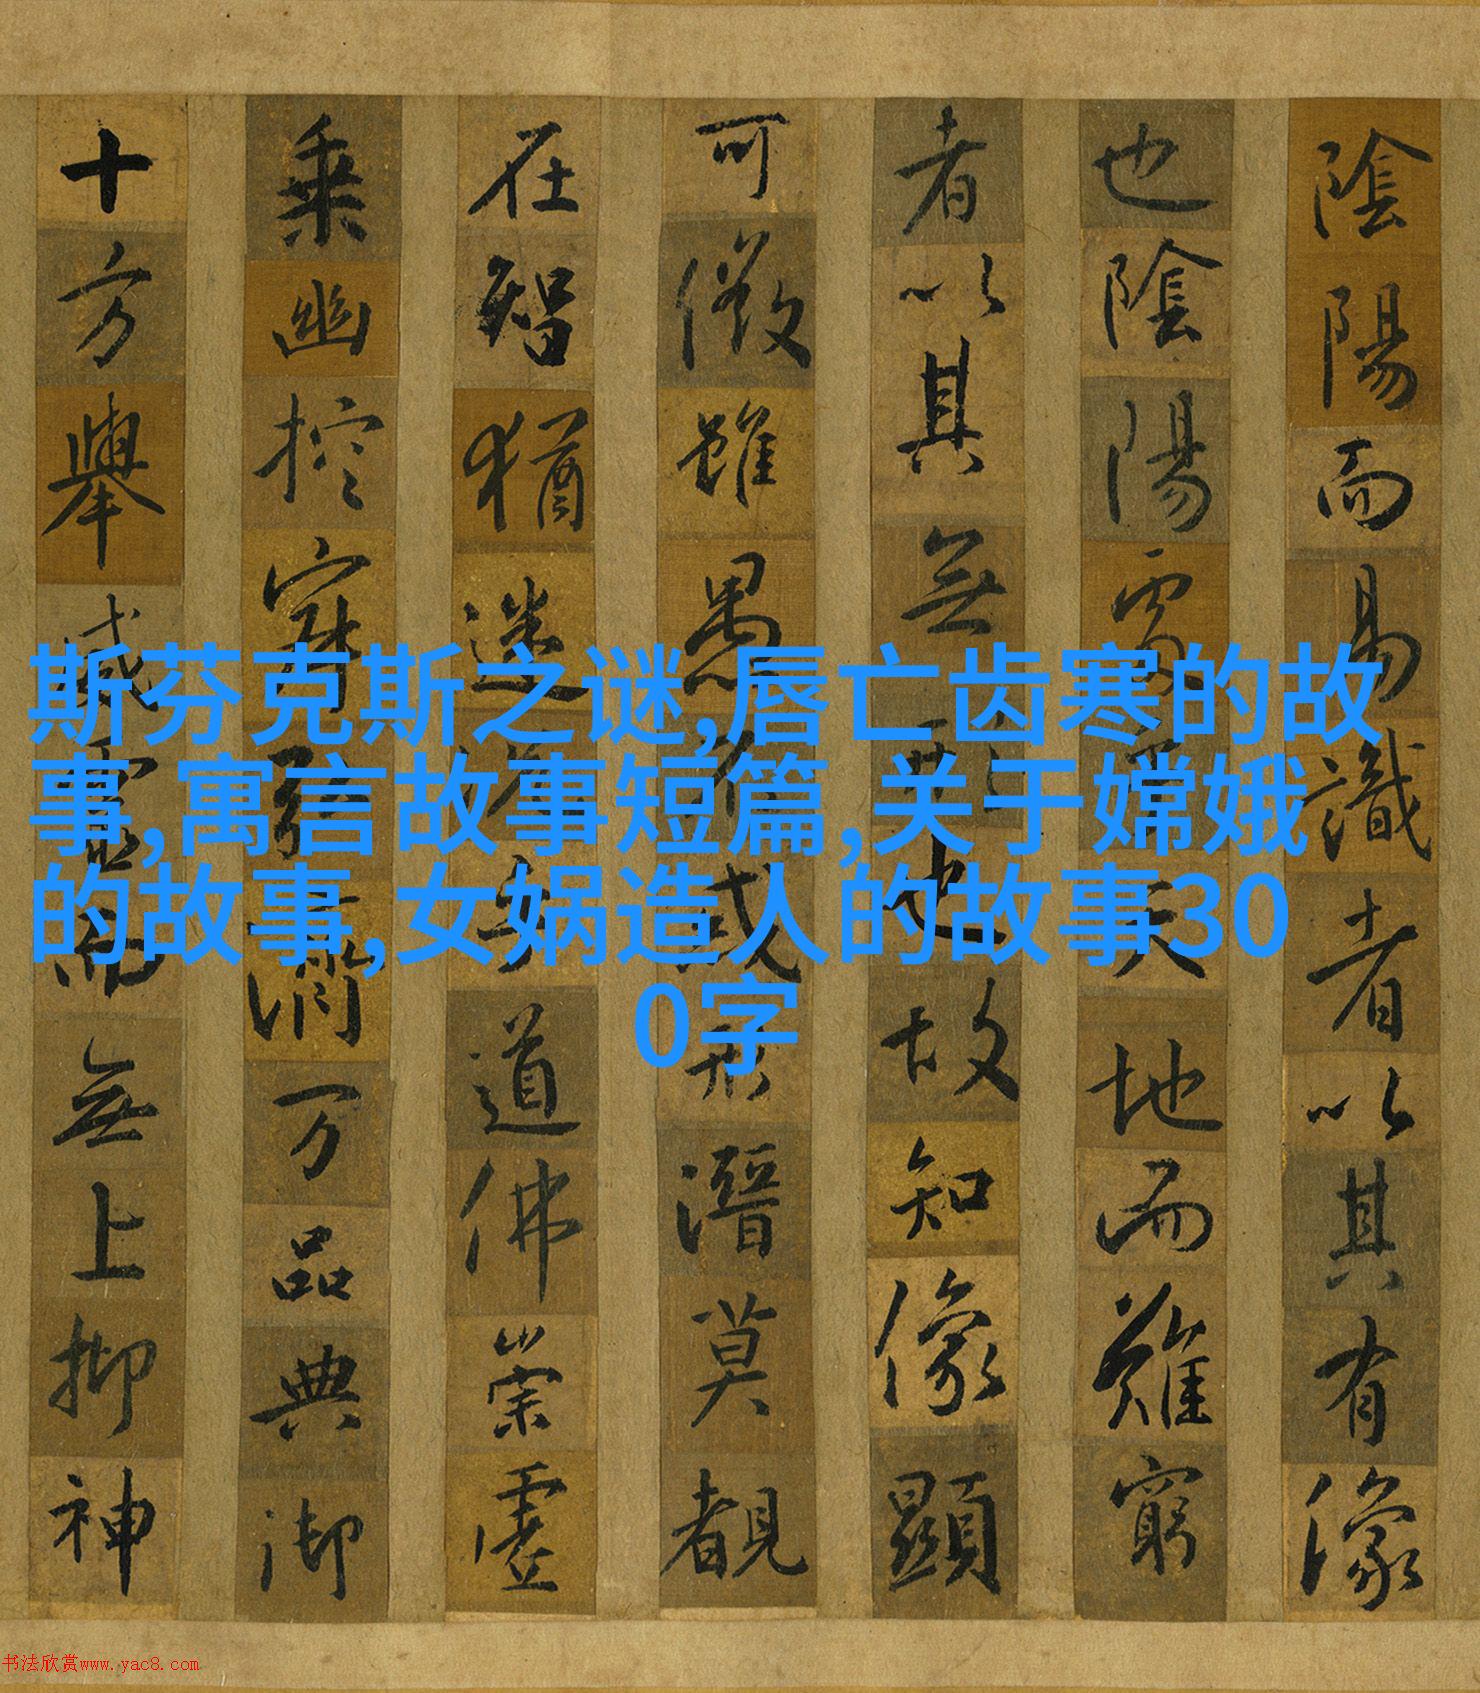 陰陽而易識者以其有像
也陰陽處乎天地而難窮
者以其無形也故知像顯
可徵雖愚不惑形潛莫覩
在智猶迷況乎道佛崇虛
乘幽控寂弘濟万品典御
十方舉威靈而無上抑神
斯芬克斯之谜,唇亡齿寒的故
事,寓言故事短篇,关于嫦娥
的故事,女娲造人的故事30
0字
书法欣赏www.yac8.com